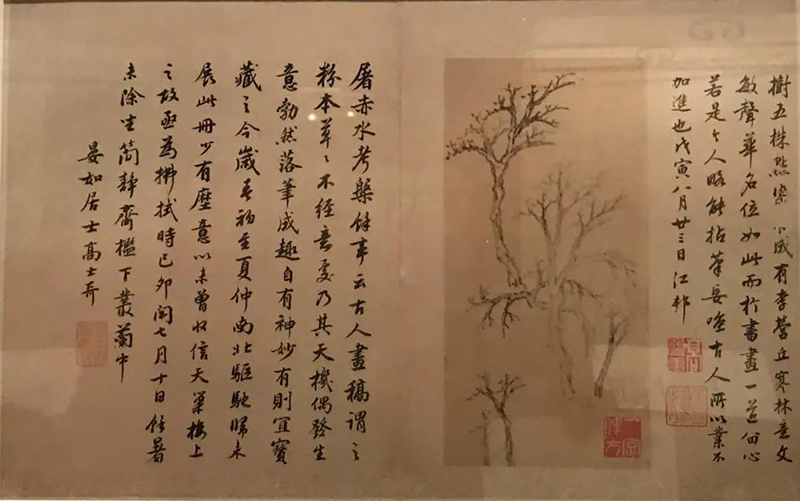 樹五株點染小成有李營丘寒林意文
敏聲華名位如此而於書畫一道心
若是今人略能拈筆妄唾古人所以業不
加進也戊寅八月廿三日江邨
屠赤水考槃餘事云古人畫稿謂之
粉本草〻不經意處乃其天機偶發生
意勃然落筆成趣自有神妙有則宜寶
藏之今歲春初至夏仲南北驅馳歸來
展此冊少有塵意以未曾收信天巢樓上
之故亟為拂拭時己卯閏七月十日餘暑
未除坐簡靜齋檻下叢蘭中
晏如居士高士奇